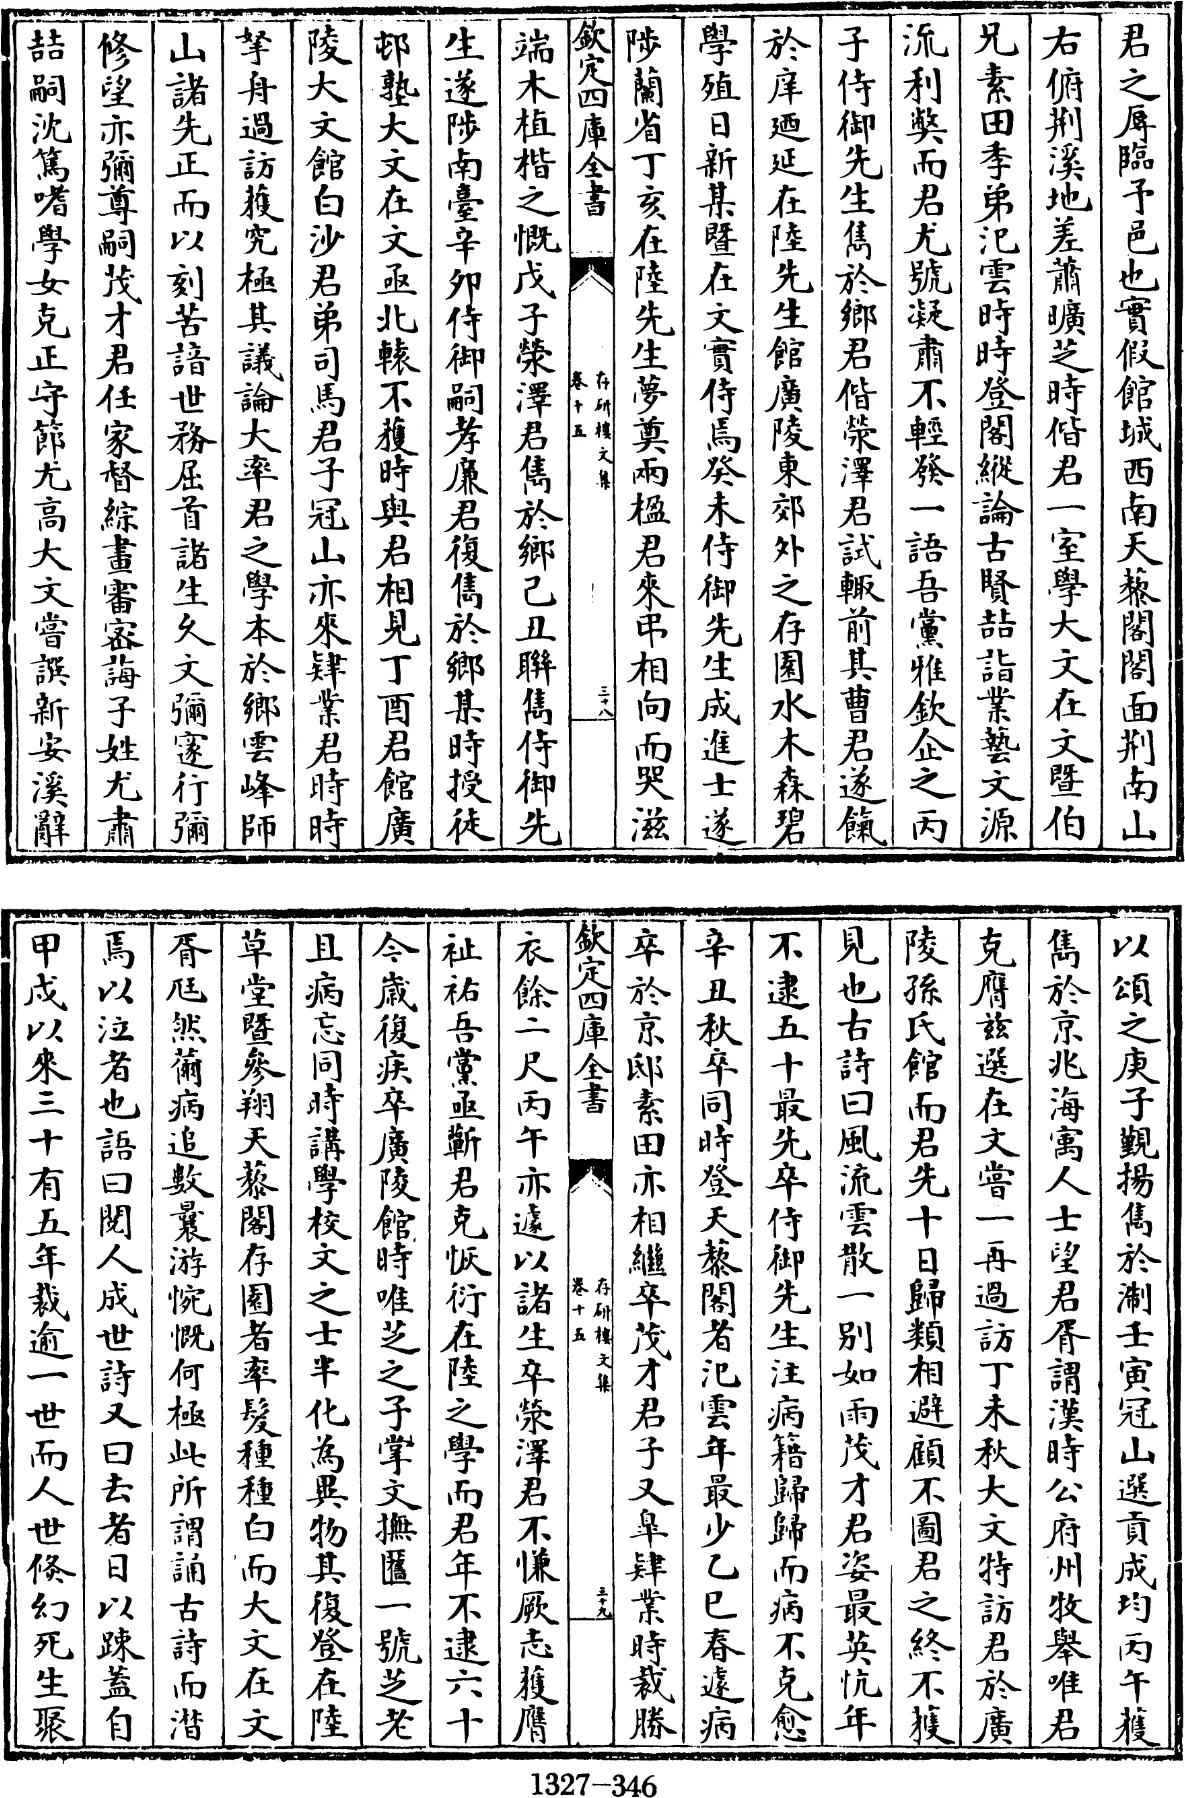 君之辱臨予邑也實假館城西南天藜閣閣面荆南山
右俯荆溪地差蕭曠芝時偕君一室學大文在文暨伯
兄素田季弟汜雲時時登閣縱論古賢喆詣業藝文源
流利獘而君尤號凝肅不輕發一語吾黨雅欽企之丙
子侍御先生雋於鄉君偕滎澤君試輒前其曹君遂餼
於庠廼延在陸先生館廣陵東郊外之存園水木森碧
學殖日新某暨在文實侍焉癸未侍御先生成進士遂
陟蘭省丁亥在陸先生夢奠兩楹君來弔相向而哭滋
欽定四庫全書
存研樓文集
卷十五
三十八
端木植楷之慨戊子滎澤君雋於鄉己丑聨雋侍御先
生遂陟南臺辛卯侍御嗣孝廉君復雋於鄉某時授徒
邨塾大文在文亟北轅不獲時與君相見丁酉君館廣
陵大文館白沙君弟司馬君子冠山亦來肄業君時時
拏舟過訪獲究極其議論大率君之學本於鄉雲峰師
山諸先正而以刻苦諳世務屈首諸生久文彌邃行彌
修望亦彌尊嗣茂才君任家督綜畫審密誨子姓尤肅
喆嗣沈篤嗜學女克正守節尤高大文嘗譔新安溪辭
以頌之庚子覲揚雋於浙壬寅冠山選貢成均丙午獲
雋於京兆海寓人士望君胥謂漢時公府州牧舉唯君
克膺兹選在文嘗一再過訪丁未秋大文特訪君於廣
陵孫氏館而君先十日歸類相避顧不圖君之終不獲
見也古詩曰風流雲散一别如雨茂才君姿最英忼年
不逮五十最先卒侍御先生注病籍歸歸而病不克愈
辛丑秋卒同時登天藜閣者汜雲年最少乙巳春遽病
卒於京邸素田亦相繼卒茂才君子又臯肄業時裁勝
欽定四庫全書
存研樓文集
卷十五
三十九
衣餘二尺丙午亦遽以諸生卒滎澤君不慊厥志獲膺
祉祐吾黨亟蘄君克恢衍在陸之學而君年不逮六十
今歲復疾卒廣陵館時唯芝之子掌文撫匶一號芝老
且病忘同時講學校文之士半化為異物其復登在陸
草堂暨參翔天藜閣存園者率髮種種白而大文在文
胥尫然薾病追數曩游惋慨何極此所謂誦古詩而潸
焉以泣者也語曰閱人成世詩又曰去者日以踈蓋自
甲戌以來三十有五年裁逾一世而人世倏幻死生聚
1327-346